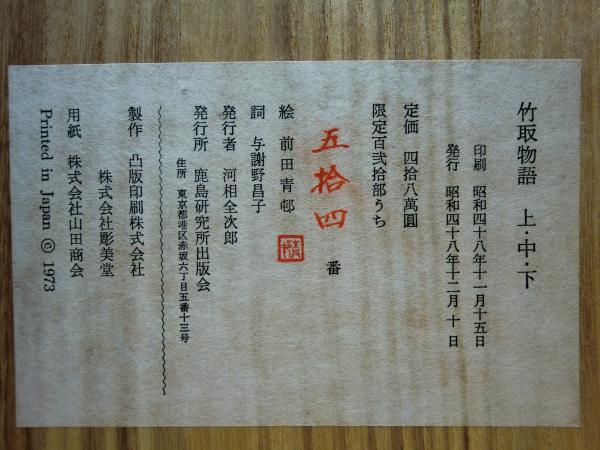 竹取物語 上・中・下
印刷 昭和四十八年十一月十五日
発行 昭和四十八年十二月十日
定価 四拾八萬圓
限定百弐拾部うち
五拾四 番
絵 前田青邨
詞 与謝野晶子
発行者 河相全次郎
発行所 鹿島研究所出版会
住所 東京都港区赤坂六丁目五番十三号
製作 凸版印刷株式会社
株式会社彫美堂
用紙 株式会社山田商会
Printed in Japan © 1973